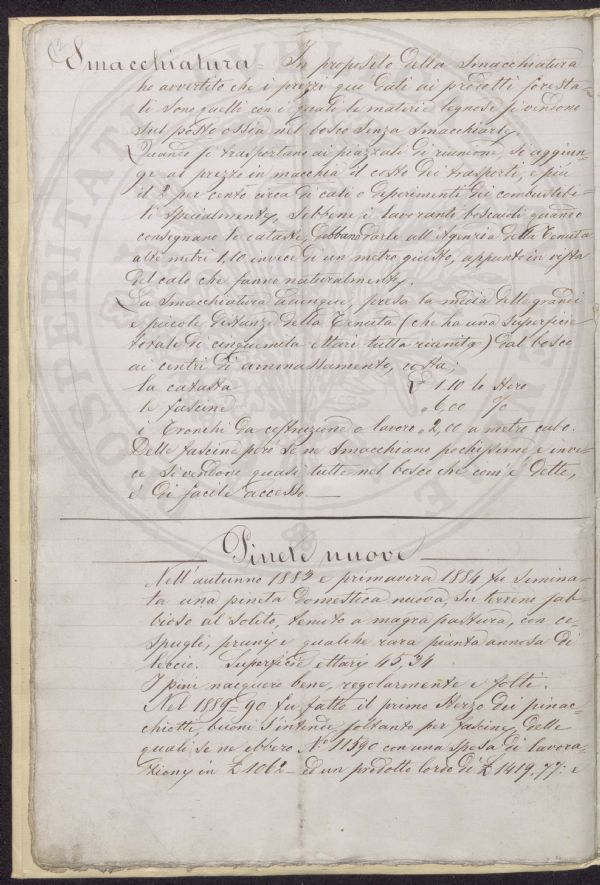 Smacchiatura = In proposito della smacchiatura
ho avvertito che i prezzi qui dati ai prodotti foresta-
li sono quelli con i quali le materie legnose si vendono
sul posto ossia nel bosco senza smacchiarle.
Quando si trasportano ai piazzali di riunione, si aggiun-
ge al prezzo in macchia il costo dei trasporti, e più
il 2 per cento circa di cali o deperimenti dei combustibi-
li specialmente, sebbene i lavoranti boscaioli quando
consegnano le cataste, debbano darle all'Agenzia della Tenuta
alte metri 1,10 invece di un metro giusto, appunto in vista
del calo che fanno naturalmente.
La smacchiatura dunque, presa la media delle grandi
e piccole distanze della Tenuta (che ha una superficie
totale di cinquemila ettari tutta riunita) dal bosco
ai centri di ammassamento, costa;
la catasta £ 1.10 lo stero
le fascine „ 6,00 %
i tronchi da costruzione o lavoro „ 2,00 a metro cubo.
Delle fascine però se ne smacchiano pochissime e inve-
ce si vendono quasi tutte nel bosco che com'è detto,
è di facile accesso
Pinete nuove
Nell'autunno 1883 e primavera 1884 fu semina-
ta una pineta domestica nuova, su terreno sab-
bioso al solito, tenuto a magra pastura, con ce-
spugli, pruni e qualche rara pianta annosa di
leccio. Superficie ettari 45,34
I pini nacquero bene, regolarmente e folti.
Nel 1889-90 fu fatto il primo sterzo dei pinac-
chiotti, buoni s'intende soltanto per fascine, delle
quali se ne ebbero N. 11590 con una spesa di lavora-
zione in £ 1062 — ed un prodotto lordo di £ 1419,77: e